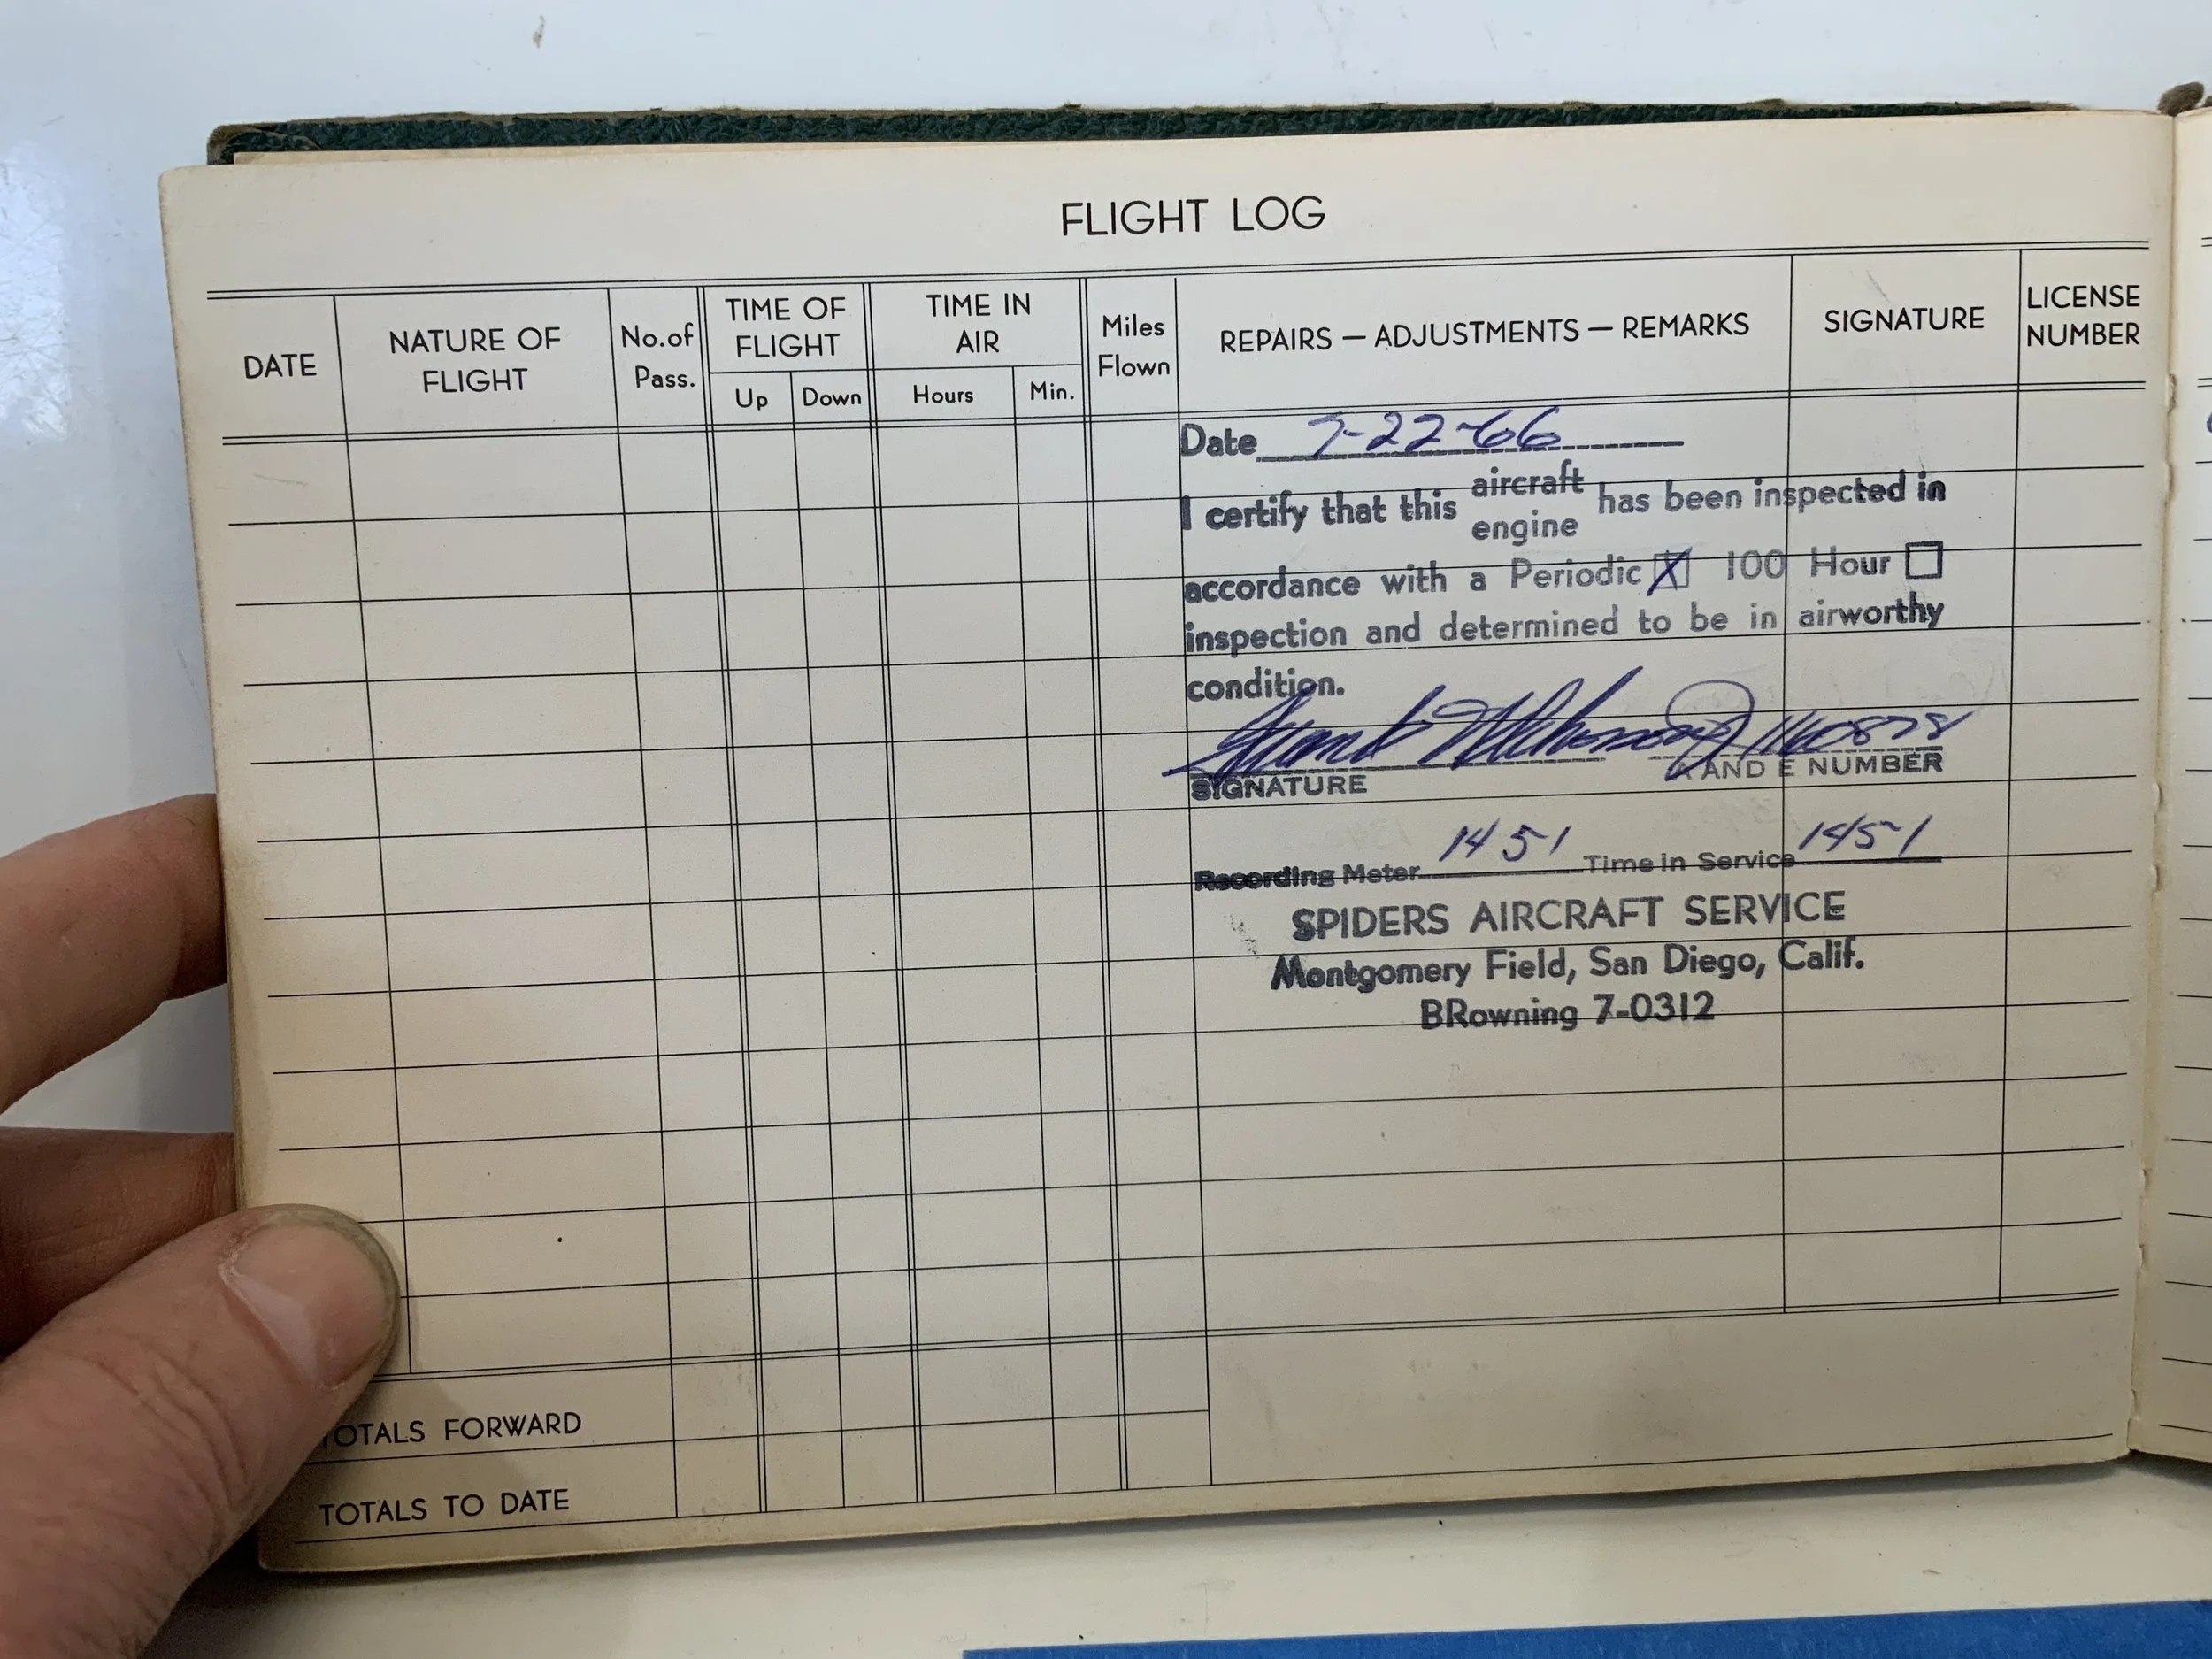 FLIGHT LOG
DATE
NATURE OF FLIGHT
No.of Pass.
TIME OF FLIGHT
Up
Down
TIME IN AIR
Hours
Min.
Miles Flown
REPAIRS — ADJUSTMENTS — REMARKS
SIGNATURE
LICENSE NUMBER
Date 7-22-66
I certify that this aircraft engine has been inspected in
accordance with a Periodic X 100 Hour
inspection and determined to be in airworthy
condition.
1160878
SIGNATURE A AND E NUMBER
Recording Meter 1451 Time in Service 1451
SPIDERS AIRCRAFT SERVICE
Montgomery Field, San Diego, Calif.
BRowning 7-0312
TOTALS FORWARD
TOTALS TO DATE